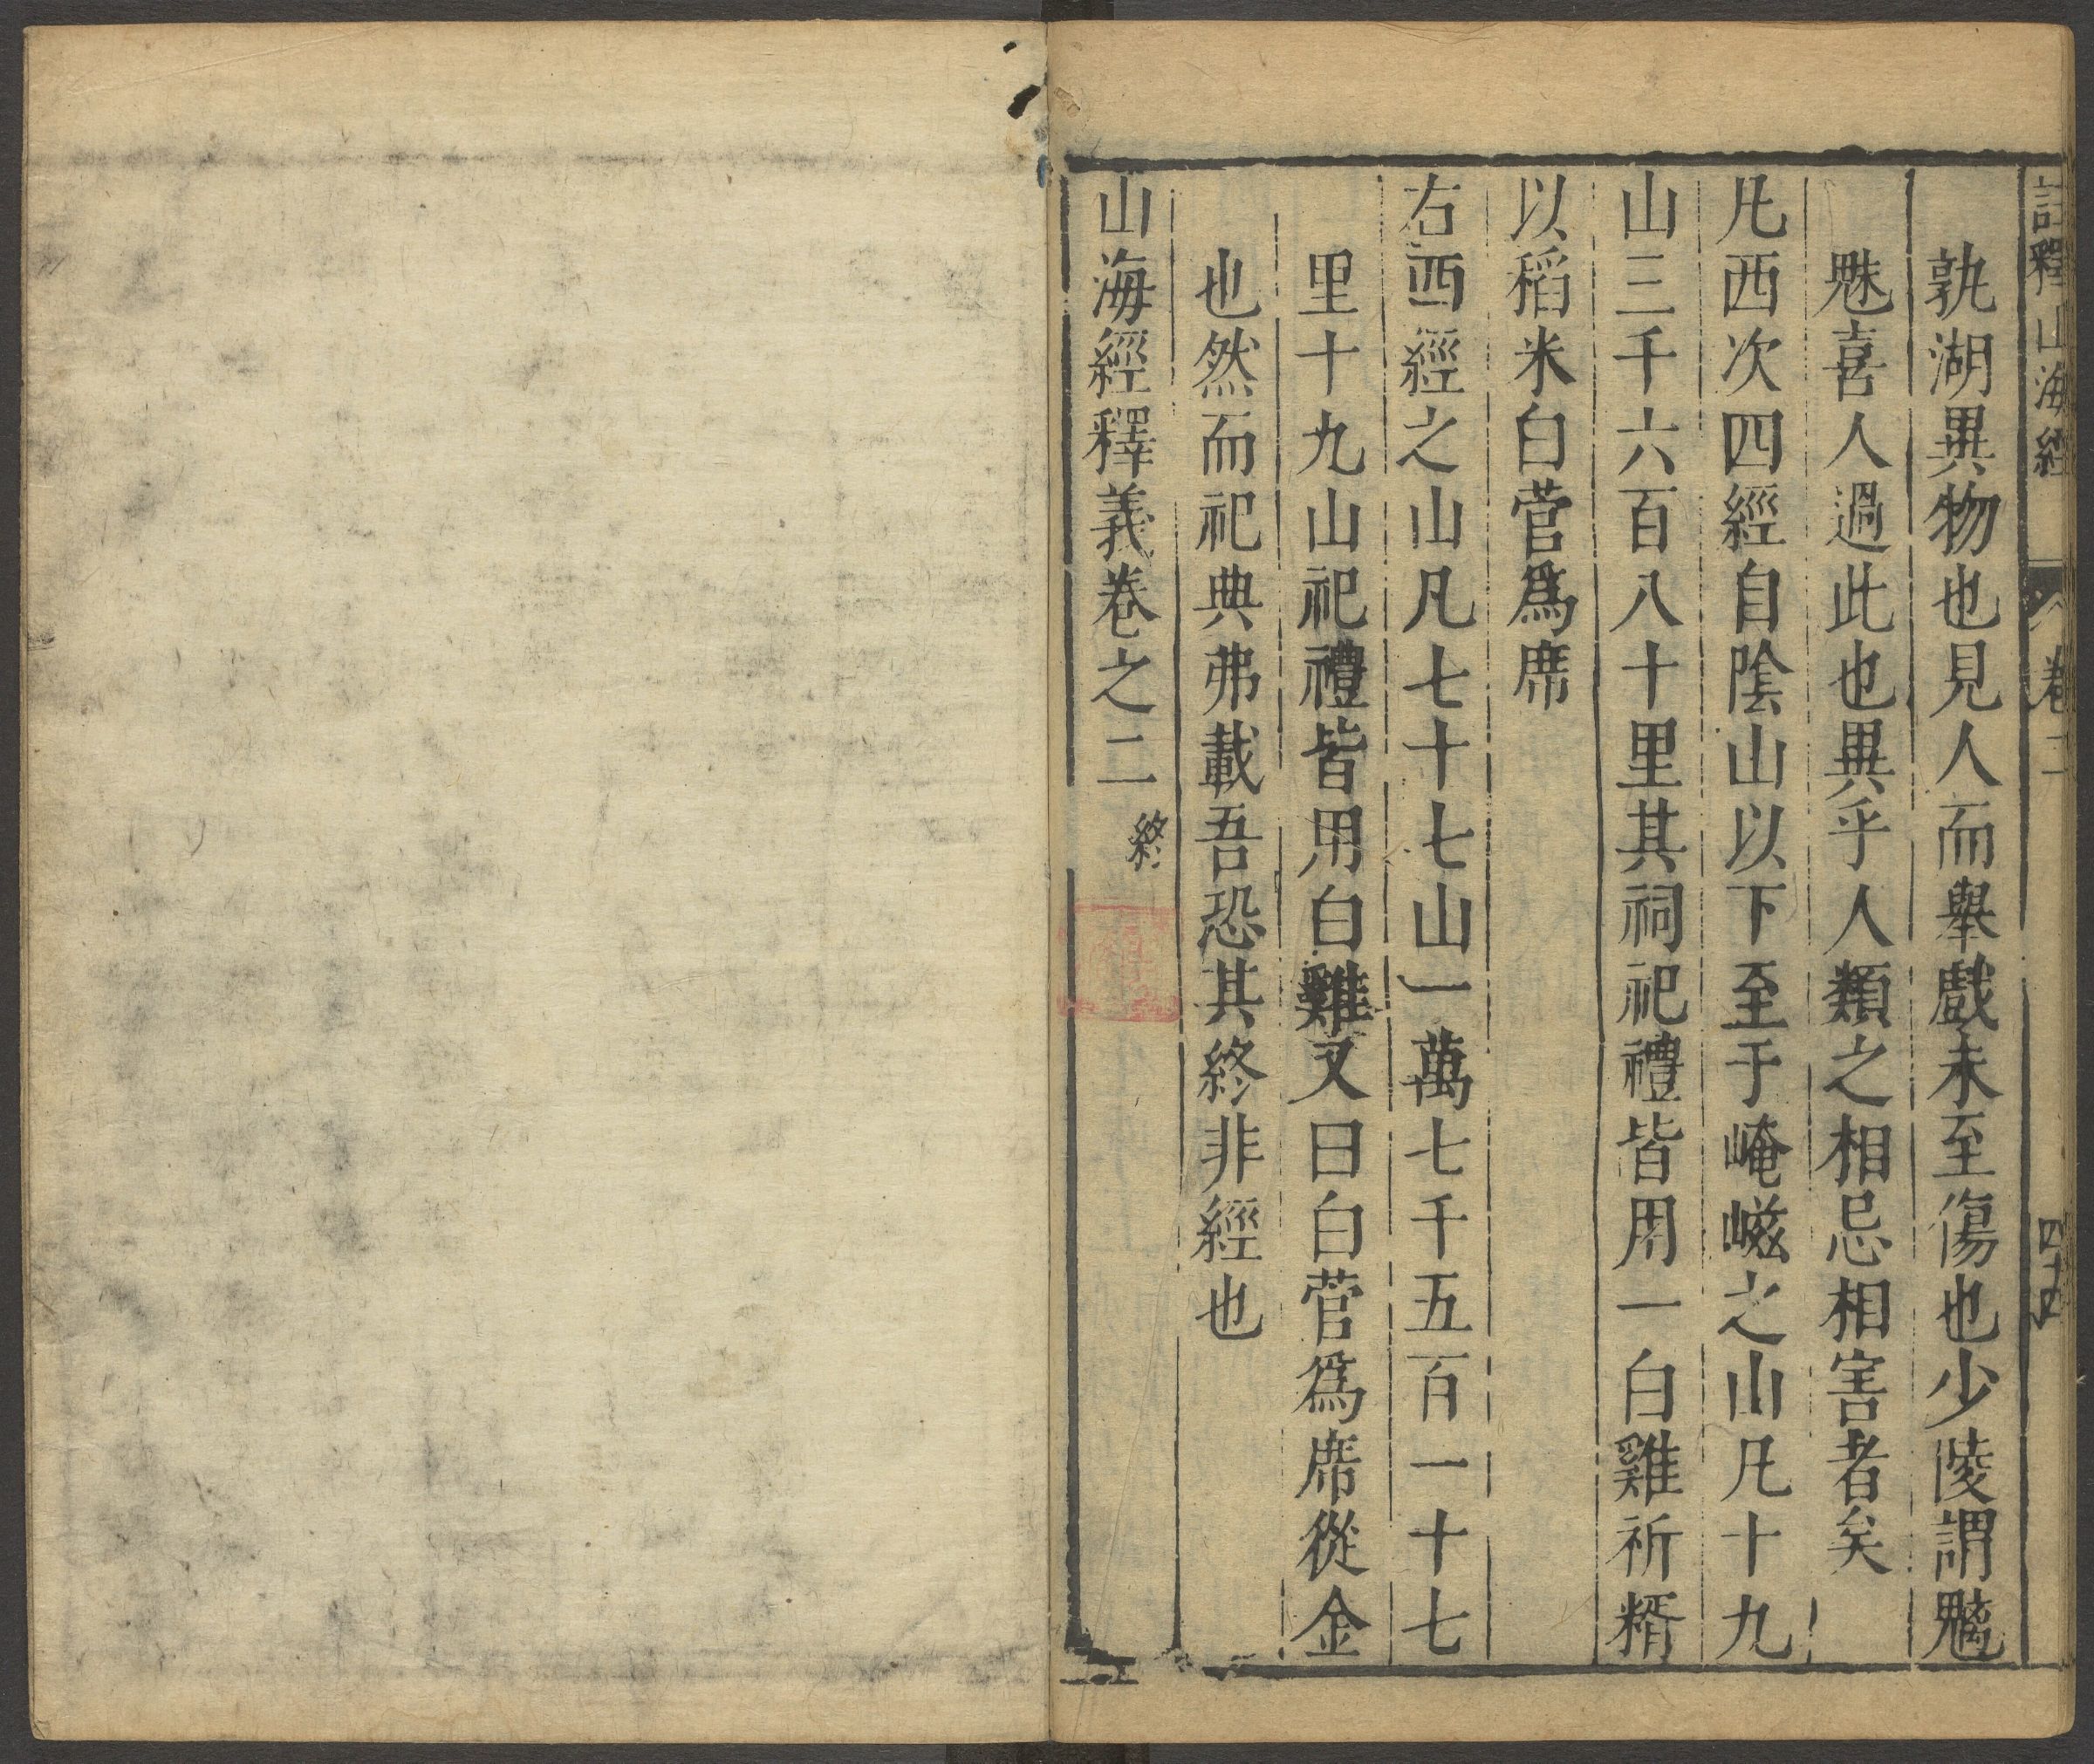 註釋山海經 卷二 四十四
孰湖異物也見人而舉戲未至傷也少陵謂魑
魅喜人過此也異乎人類之相忌相害者矣
凡西次四經自陰山以下至于崦嵫之山凡十九
山三千六百八十里其祠祀禮皆用一白雞祈糈
以稻米白菅爲席
右西經之山凡七十七山一萬七千五百一十七
里十九山祀禮皆用白雞又曰白菅爲席從金
也然而祀典弗載吾恐其終非經也
山海經釋義卷之二 終